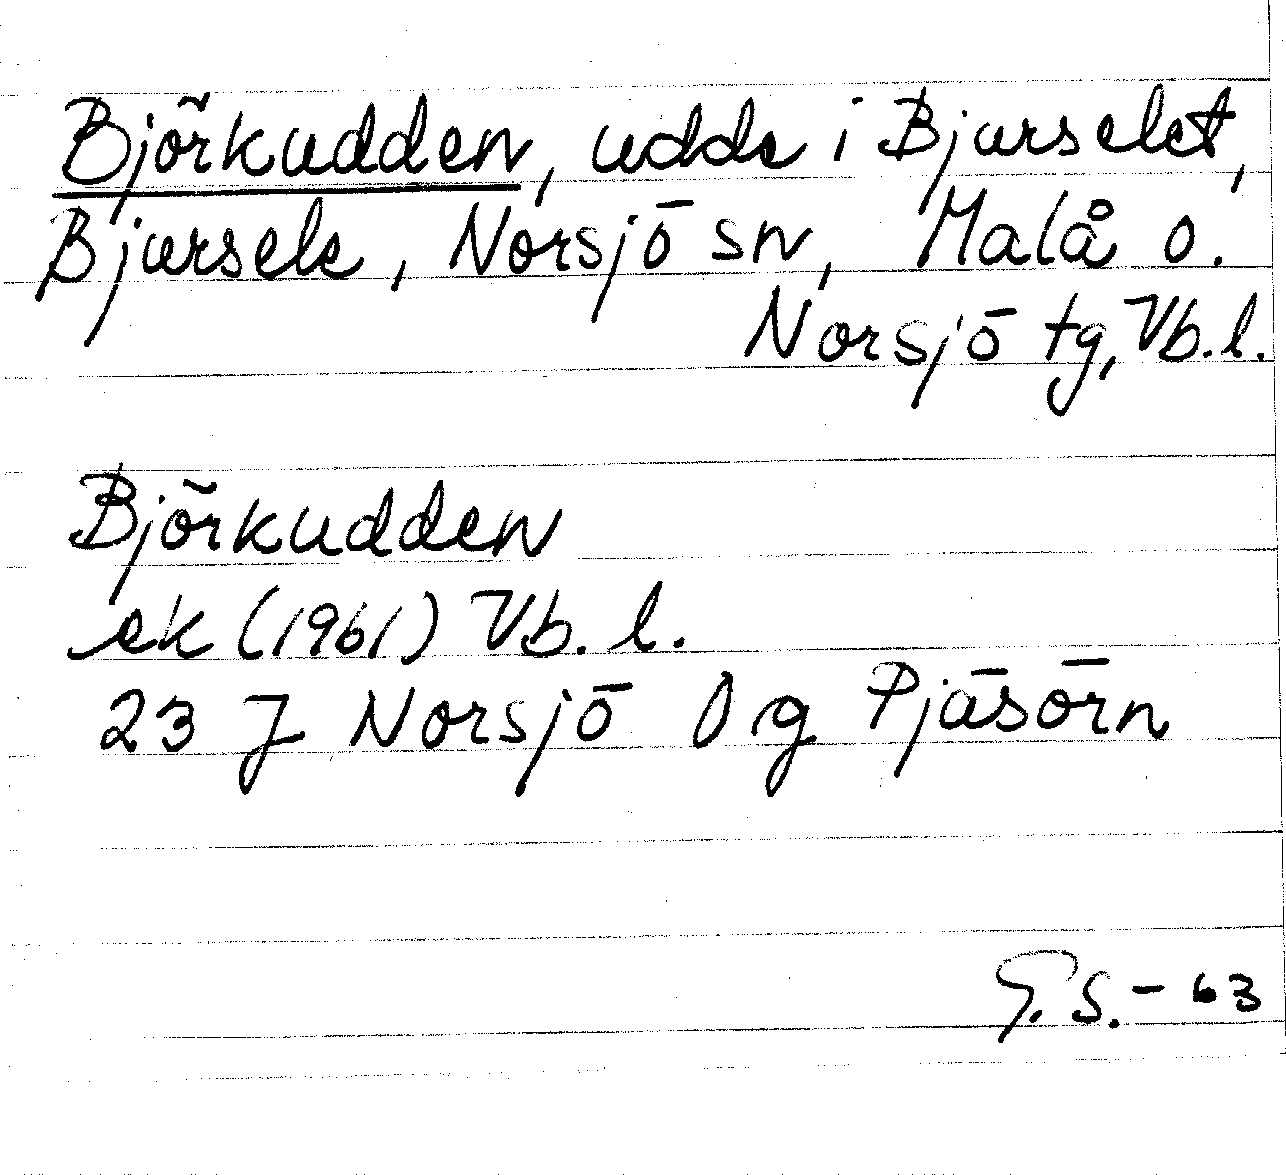 Björkudden, udde i Bjurselet,
Bjursele, Norsjö sn, Malå o.
Norsjö tg, Vb. l.
Björkudden
ek (1961) Vb. l.
23 J Norsjö 0 g Pjäsörn
G. S. - 63